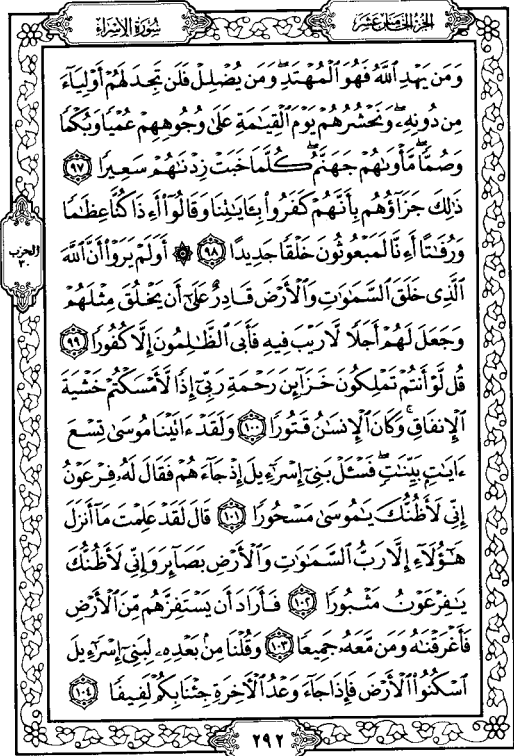 سُورَةُ الْإِسْرَاءِ
الجُزْءُ الخَامِسَ عَشَرَ
وَمَن يَهْدِ اللَّهُ فَهُوَ الْمُهْتَدِ ۖ وَمَن يُضْلِلْ فَلَن تَجِدَ لَهُمْ أَوْلِيَاءَ
مِن دُونِهِ ۖ وَنَحْشُرُهُمْ يَوْمَ الْقِيَامَةِ عَلَىٰ وُجُوهِهِمْ عُمْيًا وَبُكْمًا
وَصُمًّا ۖ مَّأْوَاهُمْ جَهَنَّمُ ۖ كُلَّمَا خَبَتْ زِدْنَاهُمْ سَعِيرًا ٩٧
ذَٰلِكَ جَزَاؤُهُم بِأَنَّهُمْ كَفَرُوا بِآيَاتِنَا وَقَالُوا أَءِذَا كُنَّا عِظَامًا
وَرُفَاتًا أَءِنَّا لَمَبْعُوثُونَ خَلْقًا جَدِيدًا ٩٨ ۞ أَوَلَمْ يَرَوْا أَنَّ اللَّهَ
الَّذِي خَلَقَ السَّمَاوَاتِ وَالْأَرْضَ قَادِرٌ عَلَىٰ أَن يَخْلُقَ مِثْلَهُمْ
وَجَعَلَ لَهُمْ أَجَلًا لَّا رَيْبَ فِيهِ فَأَبَى الظَّالِمُونَ إِلَّا كُفُورًا ٩٩
قُل لَّوْ أَنتُمْ تَمْلِكُونَ خَزَائِنَ رَحْمَةِ رَبِّي إِذًا لَّأَمْسَكْتُمْ خَشْيَةَ
الْإِنفَاقِ ۚ وَكَانَ الْإِنسَانُ قَتُورًا ١٠٠ وَلَقَدْ ءَاتَيْنَا مُوسَىٰ تِسْعَ
ءَايَاتٍ بَيِّنَاتٍ ۖ فَسْـَٔلْ بَنِي إِسْرَاءِيلَ إِذْ جَاءَهُمْ فَقَالَ لَهُ فِرْعَوْنُ
إِنِّي لَأَظُنُّكَ يَا مُوسَىٰ مَسْحُورًا ١٠١ قَالَ لَقَدْ عَلِمْتَ مَا أَنزَلَ
هَٰؤُلَاءِ إِلَّا رَبُّ السَّمَاوَاتِ وَالْأَرْضِ بَصَائِرَ وَإِنِّي لَأَظُنُّكَ
يَا فِرْعَوْنُ مَثْبُورًا ١٠٢ فَأَرَادَ أَن يَسْتَفِزَّهُم مِّنَ الْأَرْضِ
فَأَغْرَقْنَاهُ وَمَن مَّعَهُ جَمِيعًا ١٠٣ وَقُلْنَا مِن بَعْدِهِ لِبَنِي إِسْرَاءِيلَ
اسْكُنُوا الْأَرْضَ فَإِذَا جَاءَ وَعْدُ الْآخِرَةِ جِئْنَا بِكُمْ لَفِيفًا ١٠٤
الحزب
٣٠
٢٩٢